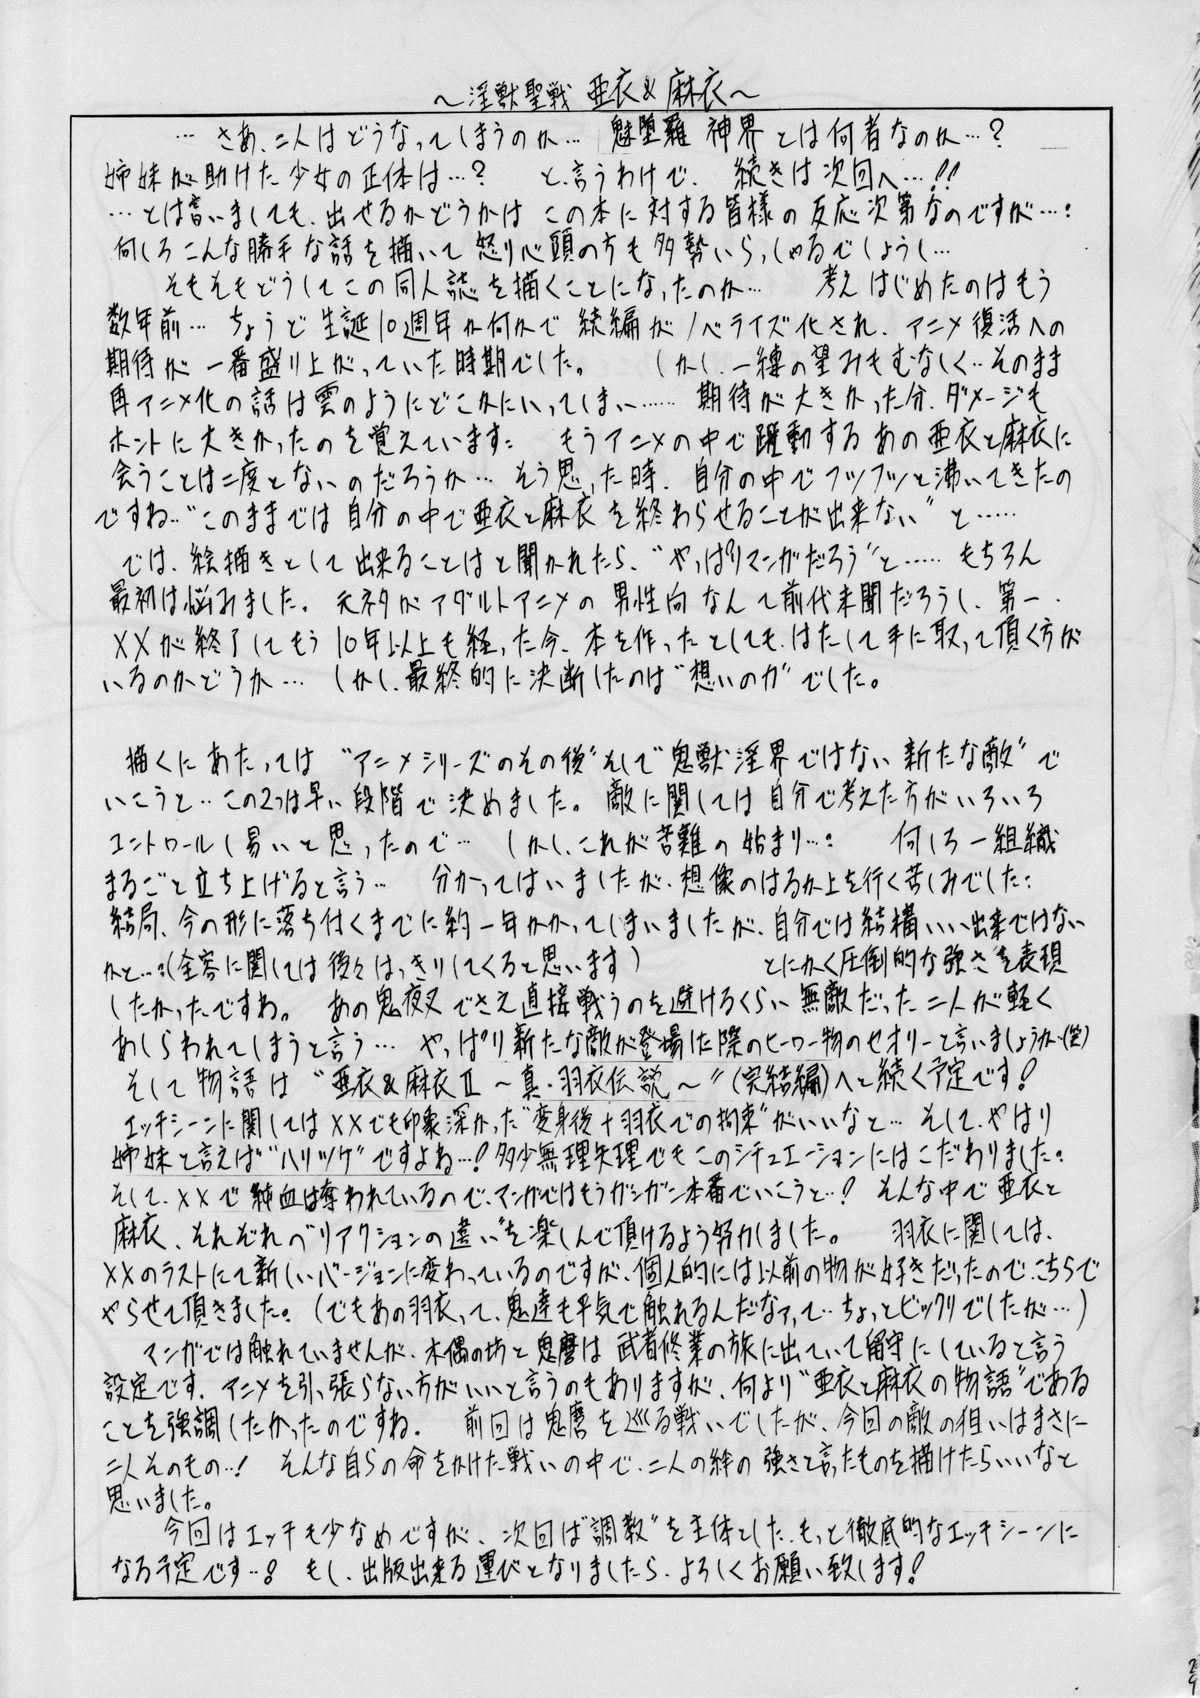 ～淫獣聖戦 亜衣&麻衣～
…さあ、二人はどうなってしまうのか… 魅堕羅神界とは何者なのか…?
姉妹が助けた少女の正体は…? と、言うわけで、続きは次回へ…!!
…とは言いましても、出せるかどうかはこの本に対する皆様の反応次第なのですが…:
何しろこんな勝手な話を描いて怒り心頭の方も多勢いらっしゃるでしょうし…
そもそもどうしてこの同人誌を描くことになったのか… 考えはじめたのはもう
数年前… ちょうど生誕10周年か何かで続編がノベライズ化され、アニメ復活への
期待が一番盛り上がっていた時期でした。 しかし、一縷の望みもむなしく…そのまま
再アニメ化の話は雲のようにどこかにいってしまい…… 期待が大きかった分、ダメージも
ホントに大きかったのを覚えています: もうアニメの中で躍動するあの亜衣と麻衣に
会うことは二度とないのだろうか… そう思った時、自分の中でフツフツと沸いてきたの
ですね…“このままでは自分の中で亜衣と麻衣を終わらせることが出来ない”と……
では、絵描きとして出来ることはと聞かれたら、“やっぱりマンガだろう”と…… もちろん
最初は悩みました。元ネタがアダルトアニメの男性向なんて前代未聞だろうし、第一、
××が終了してもう10年以上も経った今、本を作ったとしても、はたして手に取って頂く方が
いるのかどうか… しかし、最終的に決断したのは“想いの力”でした。
描くにあたっては“アニメシリーズのその後”そして“鬼獣淫界ではない新たな敵”で
いこうと…この2つは早い段階で決めました。敵に関しては自分で考えた方がいろいろ
コントロールし易いと思ったので… しかし、これが苦難の始まり…: 何しろ一組織
まるごと立ち上げると言う… 分かってはいましたが、想像のはるか上を行く苦しみでした:
結局、今の形に落ち付くまでに約一年かかってしまいましたが、自分では結構いい出来ではない
かと…:(全容に関しては後々はっきりしてくると思います) とにかく圧倒的な強さを表現
したかったですね。 あの鬼夜叉でさえ直接戦うのを避けるくらい無敵だった二人が軽く
あしらわれてしまうと言う… やっぱり新たな敵が登場した際のヒーロー物のセオリーと言いましょうか…(笑)
そして物語は“亜衣&麻衣Ⅱ～真・羽衣伝説～”(完結編)へと続く予定です!
エッチシーンに関しては××でも印象深かった“変身後+羽衣での拘束”がいいなと… そして、やはり
姉妹と言えば“ハリツケ”ですよね…!多少無理矢理でもこのシチュエーションにはこだわりました。
そして、××で純血は奪われているので、マンガではもうガンガン本番でいこうと…! そんな中で亜衣と
麻衣、それぞれの“リアクションの違い”を楽しんで頂けるよう努力しました。 羽衣に関しては、
××のラストにて新しいバージョンに変わっているのですが、個人的には以前の物が好きだったので、こちらで
やらせて頂きました。(でもあの羽衣って、鬼達も平気で触れるんだなァって…ちょっとビックリでしたが…)
マンガでは触れていませんが、木偶の坊と鬼麿は武者修業の旅に出ていて留守にしていると言う
設定です。アニメを引っ張らない方がいいと言うのもありますが、何より“亜衣と麻衣の物語”である
ことを強調したかったのですね。 前回は鬼麿を巡る戦いでしたが、今回の敵の狙いはまさに
二人そのもの…! そんな自らの命をかけた戦いの中で、二人の絆の強さと言ったものを描けたらいいなと
思いました。
今回はエッチも少なめですが、次回は“調教”を主体とした、もっと徹底的なエッチシーンに
なる予定です…! もし、出版出来る運びとなりましたら、よろしくお願い致します!